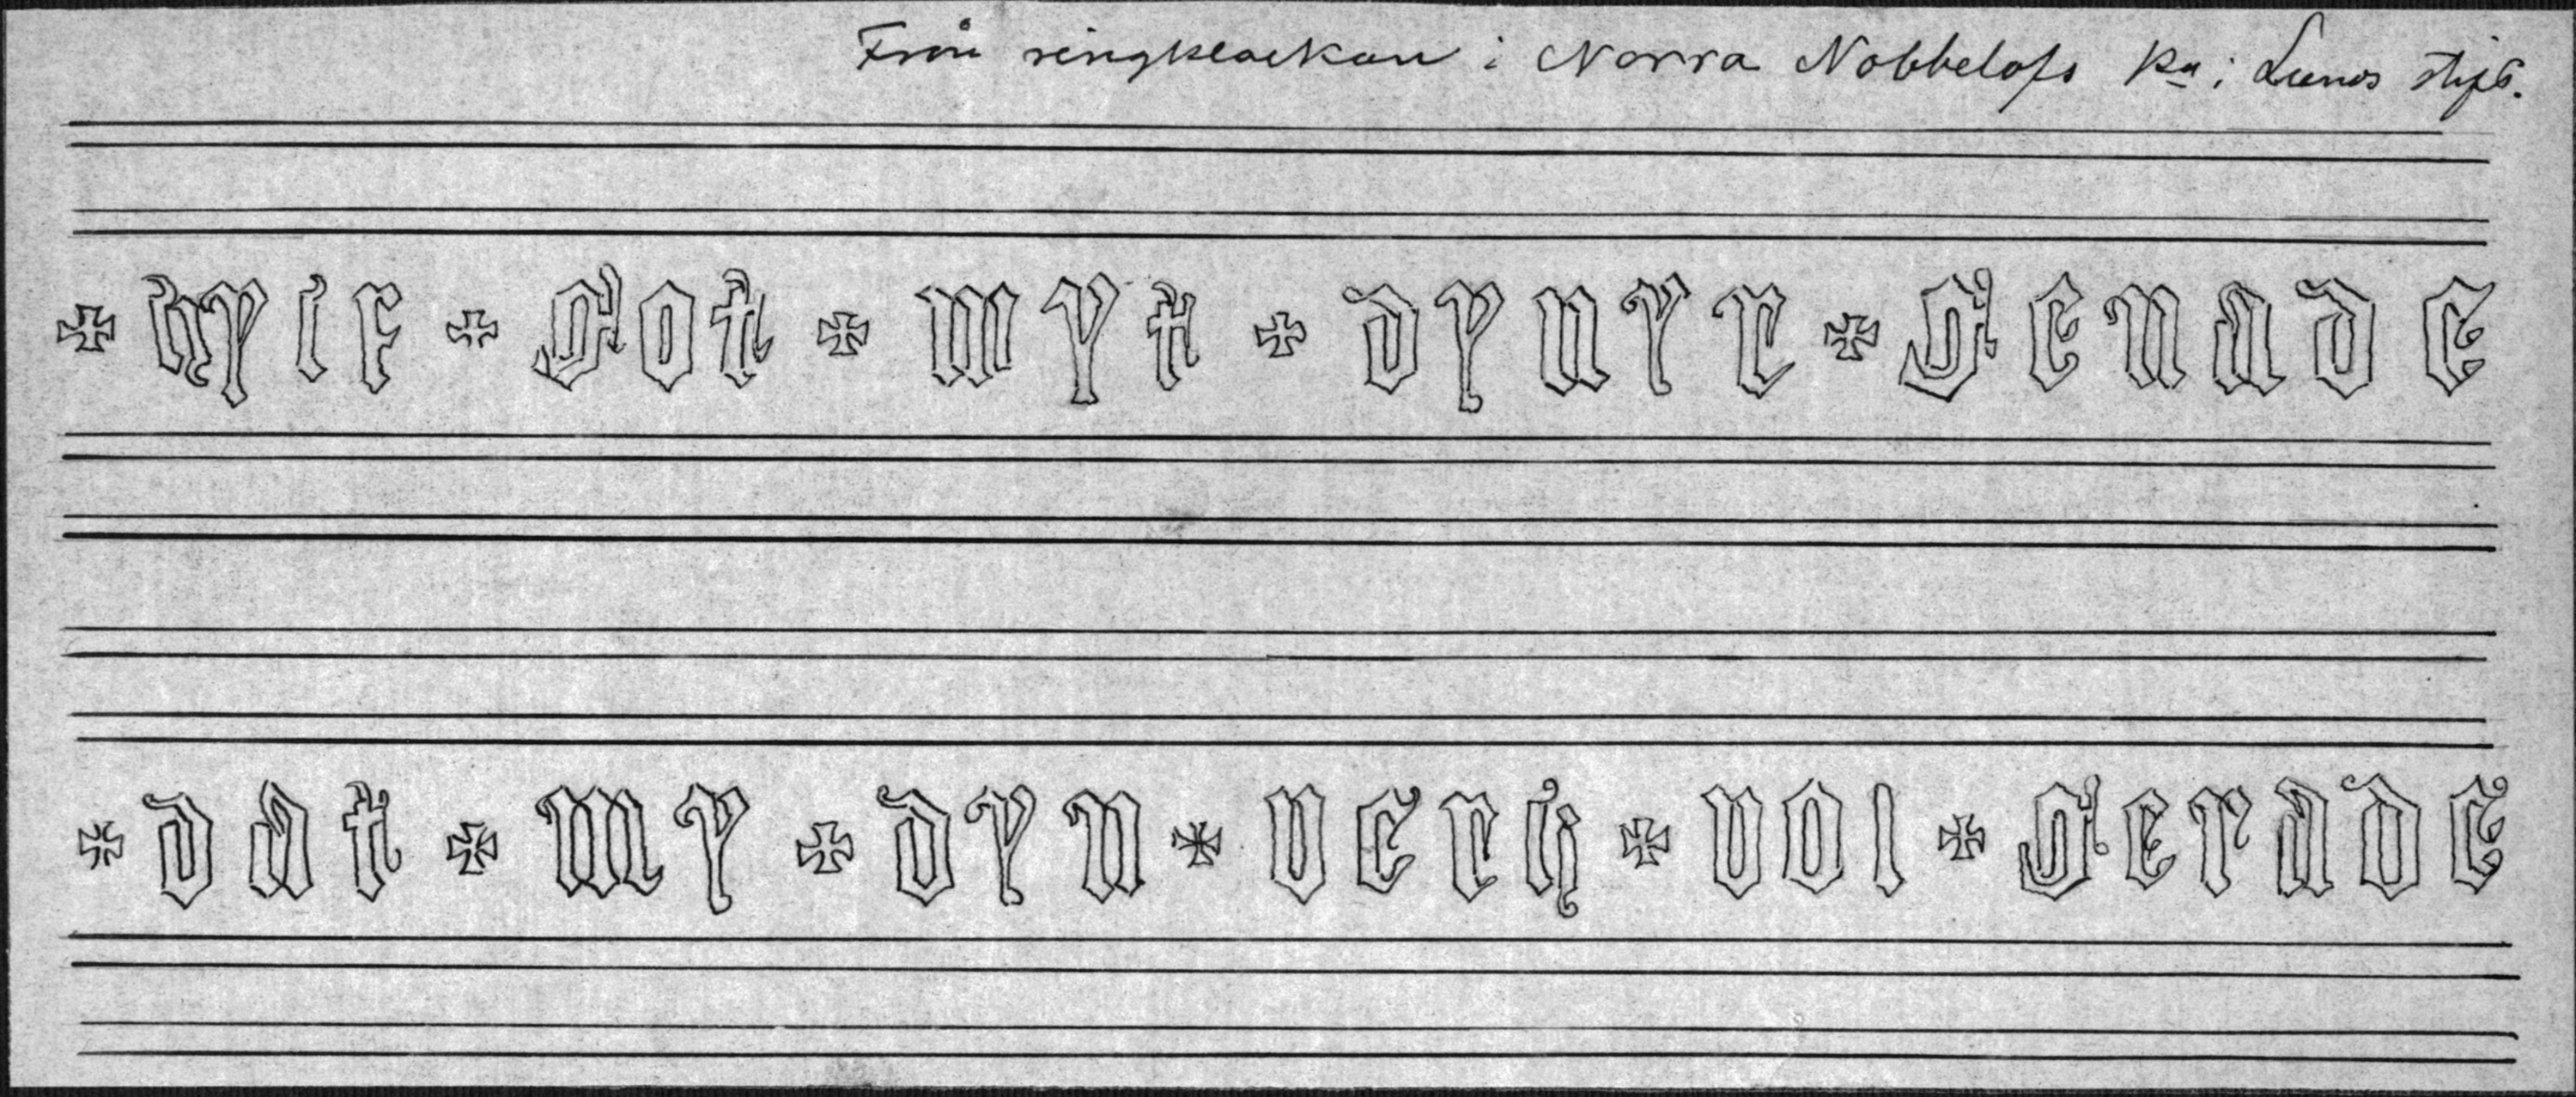 Från ringklockan i Norra Nöbbelöfs ka i Lunds stift.
✠ hylf ✠ got ✠ myt ✠ dynyr ✠ genade
✠ dat ✠ my ✠ dyn ✠ verk ✠ vol ✠ gerade